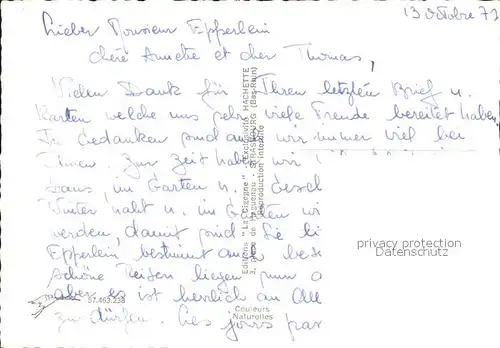 13 Octobre 73
Lieber Monsieur Epperlein
chère Annette et cher Thomas,
Vielen Dank für Ihren letzten Brief u.
Karten welche uns sehr viele Freude bereitet haben.
In Gedanken sind auch wir immer viel bei
Ihnen. Zur Zeit haben wir
Haus, im Garten u. Gesch
Winter naht u. im Garten wi
werden, damit sind Sie li
Epperlein bestimmt auch besc
schöne Reisen liegen nun a
aber es ist herrlich an Alle
zu dürfen. Ces jours pas
Editions "La Cigogne" - Exclusivité HACHETTE
3, place de Haguenau - STRASBOURG (Bas-Rhin)
Reproduction interdite
57.463.238
Couleurs
Naturelles
privacy protection
Datenschutz